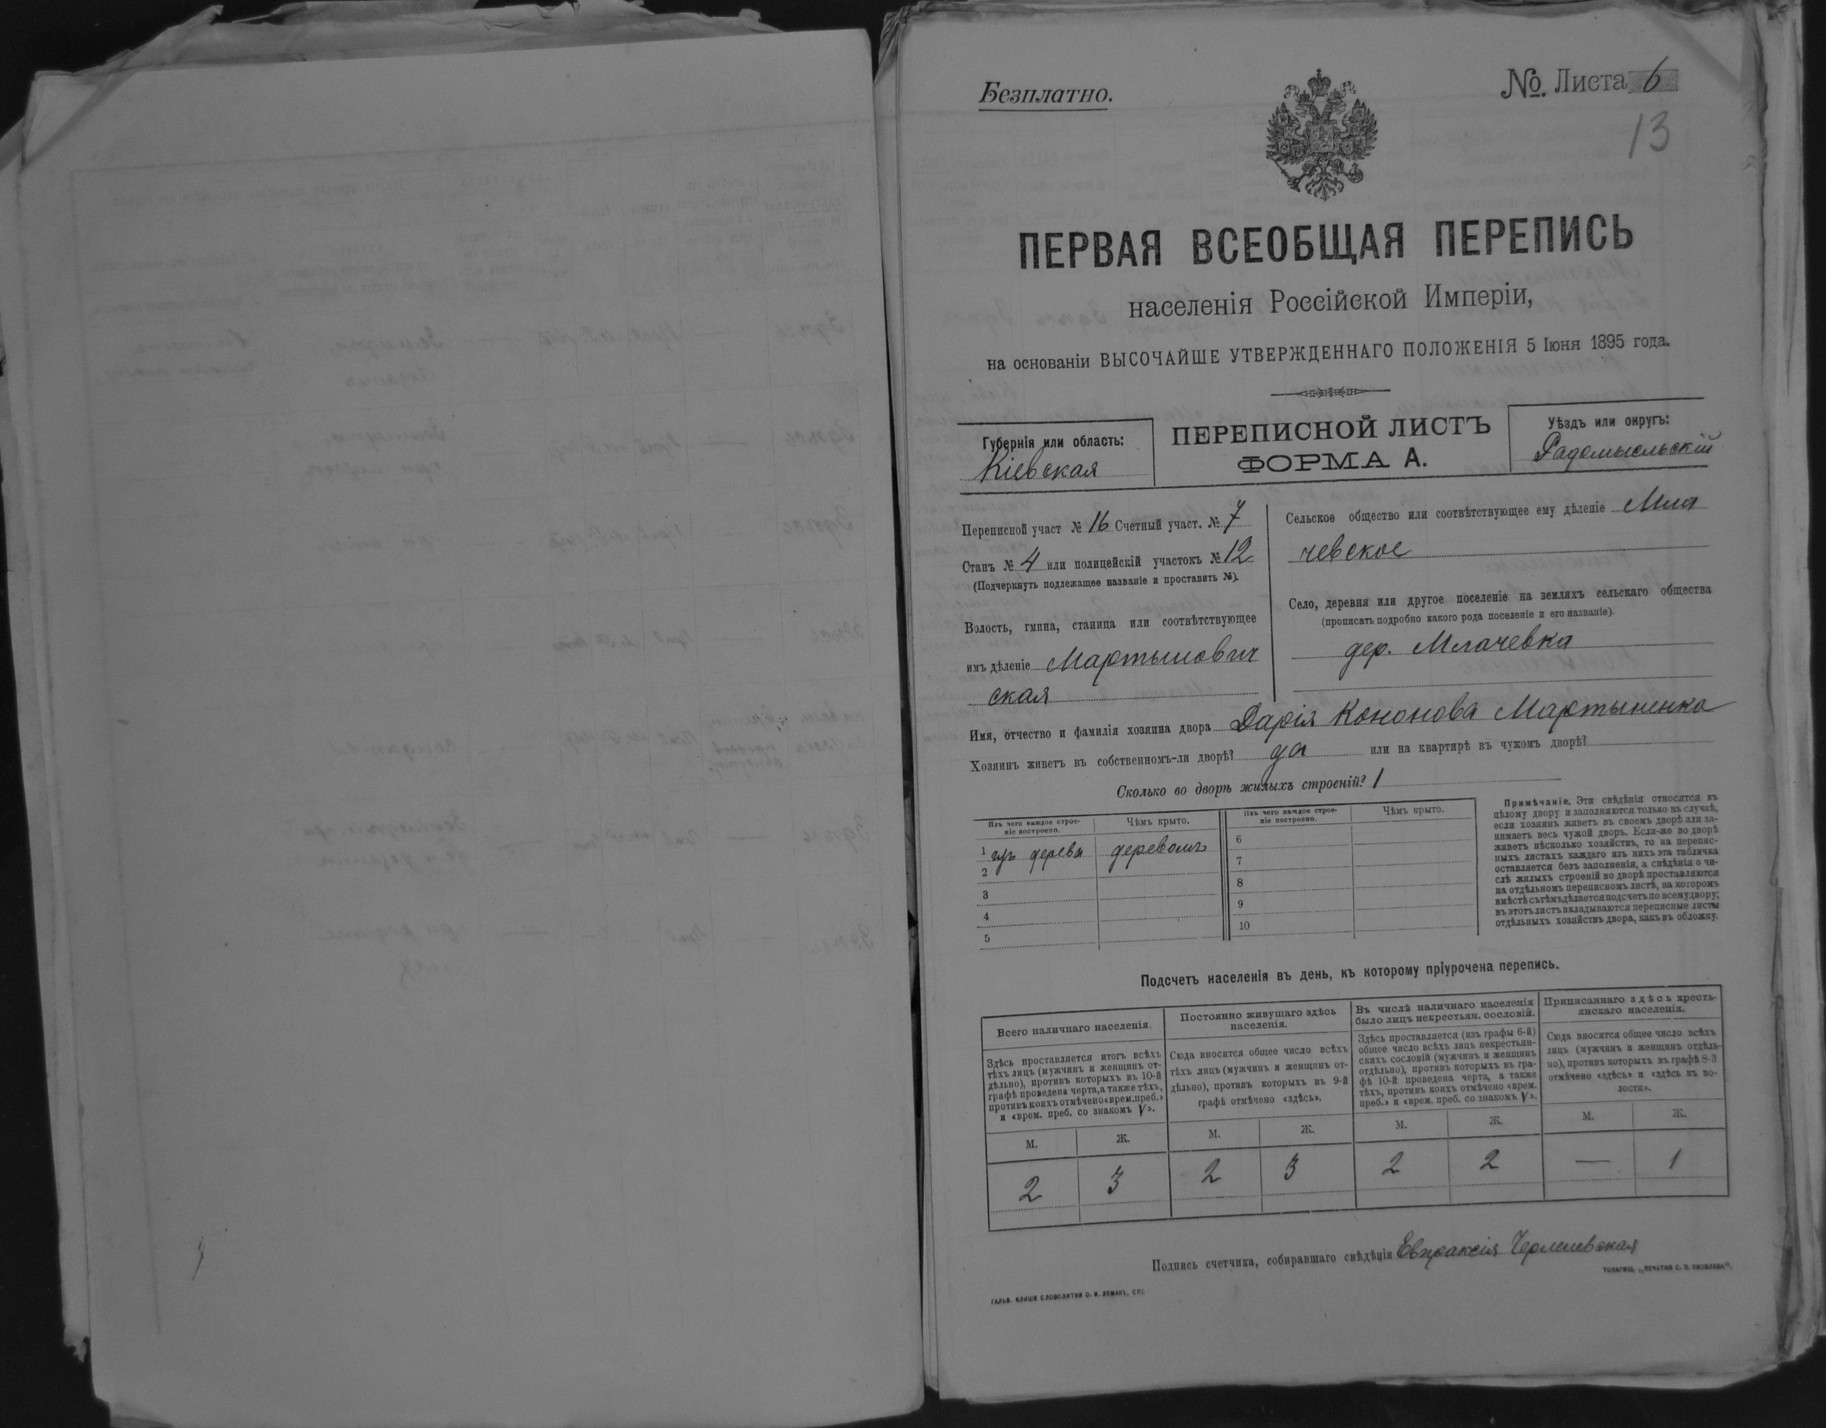 Безплатно.
№. Листа 6
13
ПЕРВАЯ ВСЕОБЩАЯ ПЕРЕПИСЬ
населенія Россійской Имперіи,
на основаніи ВЫСОЧАЙШЕ УТВЕРЖДЕННАГО ПОЛОЖЕНІЯ 5 Іюня 1895 года.
Губернія или область:
Кіевская
ПЕРЕПИСНОЙ ЛИСТЪ
ФОРМА А.
Уѣздъ или округъ:
Радомысльскій
Переписной участ № 16 Счетный участ. № 7
Станъ № 4 или полицейскій участокъ № 12
(Подчеркнуть подлежащее названіе и проставить №).
Волость, гмина, станица или соотвѣтствующее
имъ дѣленіе Мартынович
ская
Сельское общество или соотвѣтствующее ему дѣленіе Мла
чевское
Село, деревня или другое поселеніе на земляхъ сельскаго общества
(прописать подробно какого рода поселеніе и его названіе).
дер. Млачевка
Имя, отчество и фамилія хозяина двора Дарія Кононова Мартыненко
Хозяинъ живетъ въ собственномъ-ли дворѣ? да или на квартирѣ въ чужомъ дворѣ?
Сколько во дворѣ жилыхъ строеній? 1
Изъ чего каждое строе-
ніе построено.
Чѣмъ крыто.
1 изъ дерева деревомъ
2
3
4
5
Изъ чего каждое строе-
ніе построено.
Чѣмъ крыто.
6
7
8
9
10
Примѣчаніе. Эти свѣдѣнія относятся къ
цѣлому двору и заполняются только въ случаѣ,
если хозяинъ живетъ въ своемъ дворѣ или за-
нимаетъ весь чужой дворъ. Если-же во дворѣ
живетъ нѣсколько хозяйствъ, то на перепис-
ныхъ листахъ каждаго изъ нихъ эта табличка
оставляется безъ заполненія, а свѣдѣнія о чи-
слѣ жилыхъ строеній во дворѣ проставляются
на отдѣльномъ переписномъ листѣ, на которомъ
вмѣстѣ съ тѣмъ дѣлается подсчетъ по всему двору;
въ этотъ листъ вкладываются переписные листы
отдѣльныхъ хозяйствъ двора, какъ въ обложку.
Подсчетъ населенія въ день, къ которому пріурочена перепись.
Всего наличнаго населенія.
Здѣсь проставляется итогъ всѣхъ
тѣхъ лицъ (мужчинъ и женщинъ от-
дѣльно), противъ которыхъ въ 10-й
графѣ проведена черта, а также тѣхъ,
противъ коихъ отмѣчено «врем. преб.»
и «врем. преб. со знакомъ V».
М. Ж.
2 3
Постоянно живущаго здѣсь
населенія.
Сюда вносится общее число всѣхъ
тѣхъ лицъ (мужчинъ и женщинъ от-
дѣльно), противъ которыхъ въ 9-й
графѣ отмѣчено «здѣсь».
М. Ж.
2 3
Въ числѣ наличнаго населенія
было лицъ некрестьян. сословій.
Здѣсь проставляется (изъ графы 6-й)
общее число всѣхъ лицъ некрестьян-
скихъ сословій (мужчинъ и женщинъ
отдѣльно), противъ которыхъ въ гра-
фѣ 10-й проведена черта, а также
тѣхъ, противъ коихъ отмѣчено «врем.
преб.» и «врем. преб. со знакомъ V».
М. Ж.
2 2
Приписаннаго здѣсь кресть-
янскаго населенія.
Сюда вносится общее число всѣхъ
лицъ (мужчинъ и женщинъ отдѣль-
но), противъ которыхъ въ графѣ 8-й
отмѣчено «здѣсь» и «здѣсь въ во-
лости».
М. Ж.
— 1
Подпись счетчика, собиравшаго свѣдѣнія Евпраксія
ГАЛЬВ. КЛИШЕ СЛОВОЛИТНИ О. И. ЛЕМАНЪ, СПБ.
ТОВАРИЩ. „ПЕЧАТНЯ С. П. ЯКОВЛЕВА".